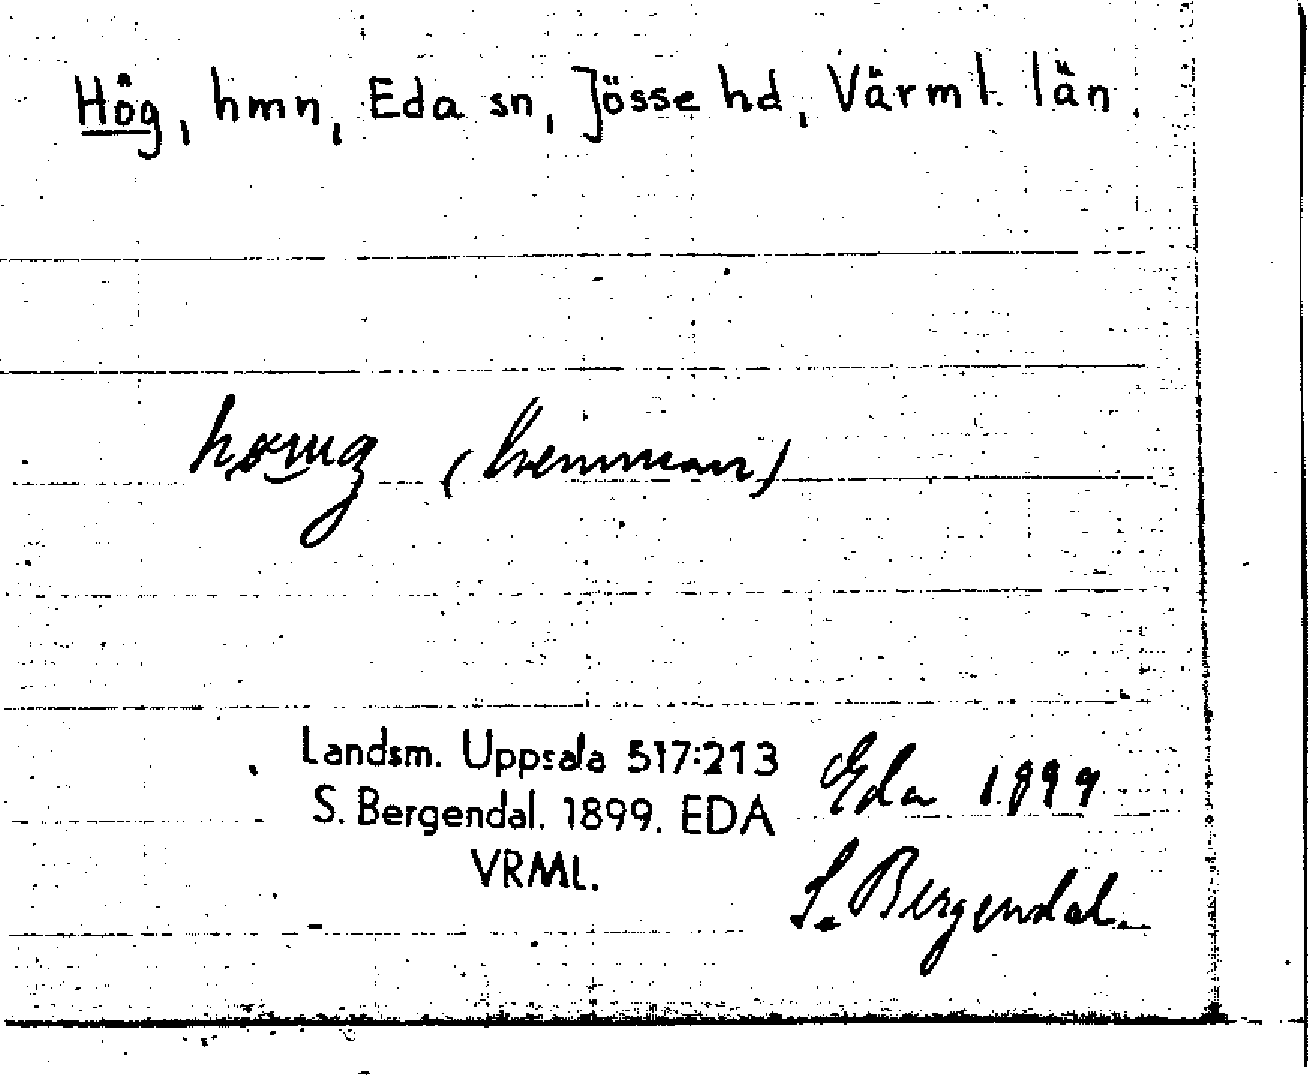 Hög, hmn, Eda sn, Jösse hd, Värml. län
(hemman)
Landsm. Uppsala 517:213
S. Bergendal. 1899. EDA
VRML.
Eda 1899
S. Bergendal.